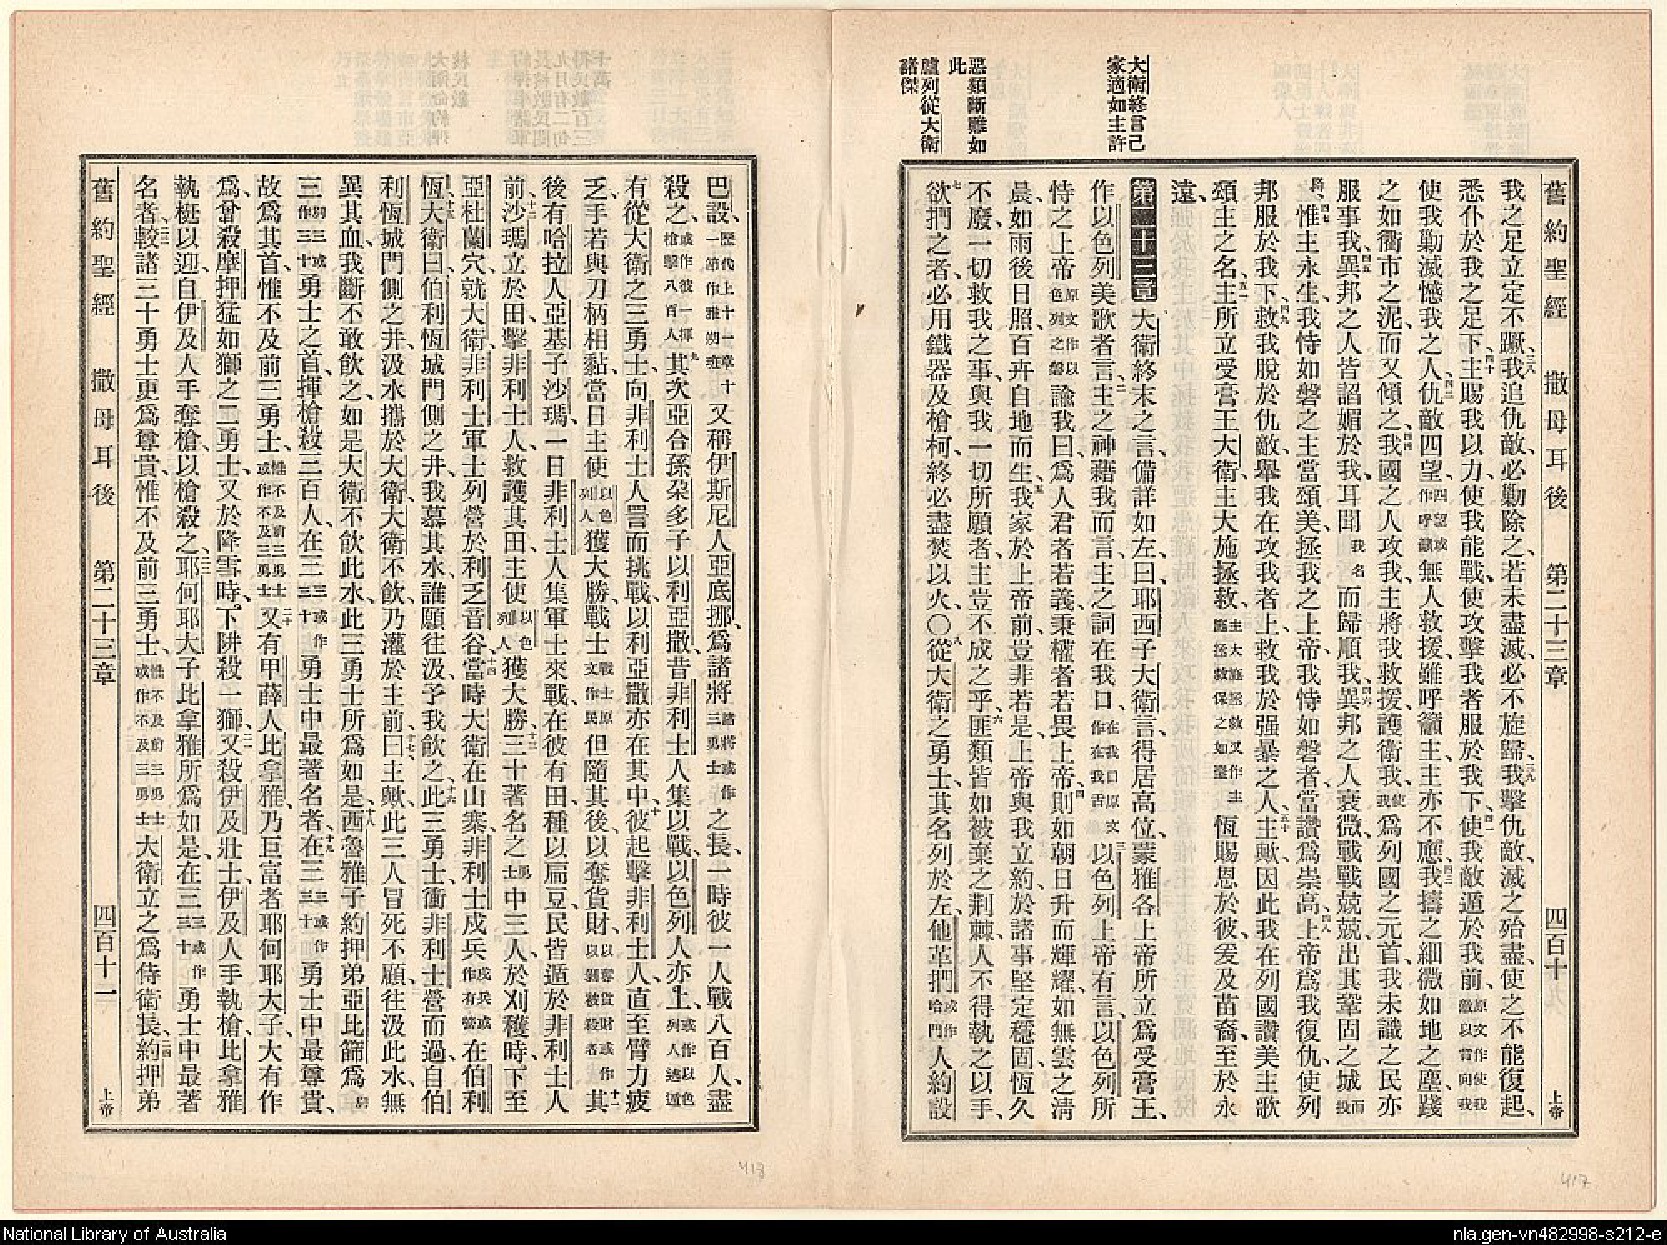 大衛終言己
家適如主許
惡類斷難如
此
臚列從大衛
諸傑
舊約聖經 撒母耳後 第二十三章 四百十 上帝
我之足立定不蹶我追仇敵必勦除之若未盡滅必不旋歸我擊仇敵滅之殆盡使之不能復起
悉仆於我之足下主賜我以力使我能戰使攻擊我者服於我下使我敵遁於我前
使我勦滅憾我之人仇敵四望四望或作呼籲無人救援雖呼籲主主亦不應我擣之細微如地之塵踐
之如衢市之泥而又傾之我國之人攻我主將我救援護衛我使我為列國之元首我未識之民亦
服事我異邦之人皆諂媚於我耳聞我名而歸順我異邦之人衰微戰戰兢兢出其鞏固之城
惟主永生我恃如磐之主當頌美拯我之上帝我恃如磐者當讚為崇高上帝為我復仇使列
邦服於我下救我脫於仇敵舉我在攻我者上救我於强暴之人主歟因此我在列國讚美主歌
頌主之名主所立受膏王大衛主大施拯救主大施拯救又作主施拯救保之如臺恆賜恩於彼爰及苗裔至於永
遠
第二十三章 大衛終末之言備詳如左曰耶西子大衛言得居高位蒙雅各上帝所立為受膏王
作以色列美歌者言主之神藉我而言主之詞在我口在我口原文作在我舌以色列上帝有言以色列所
恃之上帝原文作以色列之磐諭我曰為人君者若義秉權者若畏上帝則如朝日升而輝耀如無雲之清
晨如雨後日照百卉自地而生我家於上帝前豈非若是上帝與我立約於諸事堅定穩固恆久
不廢一切救我之事與我一切所願者主豈不成之乎匪類皆如被棄之荆棘人不得執之以手
欲捫之者必用鐵器及槍柯終必盡焚以火〇從大衛之勇士其名列於左他革捫或作哈革門人約設
巴設歷代上十一章十一節作雅朔班又稱伊斯尼人亞底挪為諸將諸將或作三勇士之長一時彼一人戰八百人盡
殺之或作彼一揮槍擊八百人其次亞合孫朶多子以利亞撒昔非利士人集以戰以色列人亦上或作以色列人遂遁
有從大衛之三勇士向非利士人詈而挑戰以利亞撒亦在其中彼起擊非利士人直至臂力疲
乏手若與刀柄相黏當日主使以色列人獲大勝戰士戰士原文作民但隨其後以奪貨財以奪貨財或作以剝被殺者其
後有哈拉人亞基子沙瑪一日非利士人集軍士來戰在彼有田種以扁豆民皆遁於非利士人
前沙瑪立於田擊非利士人救護其田主使以色列人獲大勝三十著名之勇士中三人於刈穫時下至
亞杜蘭穴就大衛非利士軍士列營於利乏音谷當時大衛在山寨非利士戍兵戍兵或作有營在伯利
恆大衛曰伯利恆城門側之井我慕其水誰願往汲予我飲之此三勇士衝非利士營而過自伯
利恆城門側之井汲水攜於大衛大衛不飲乃灌於主前曰主歟此三人冒死不顧往汲此水無
異其血我斷不敢飲之如是大衛不飲此水此三勇士所為如是洒魯雅子約押弟亞比篩為
三三或作三十勇士之首揮槍殺三百人在三三或作三十勇士中最著名者在三三或作三十勇士中最尊貴
故為其首惟不及前三勇士惟不及前三勇士或作不及三勇士又有甲薛人比拿雅乃巨富者耶何耶大子大有作
為曾殺摩押猛如獅之二勇士又於降雪時下阱殺一獅又殺伊及壯士伊及人手執槍比拿雅
執梃以迎自伊及人手奪槍以槍殺之耶何耶大子比拿雅所為如是在三三或作三十勇士中最著
名者較諸三十勇士更為尊貴惟不及前三勇士惟不及前三勇士或作不及三勇士大衛立之為侍衛長約押弟
舊約聖經 撒母耳後 第二十三章 四百十一 上帝
418
417
National Library of Australia
nla.gen-vn482998-s212-e